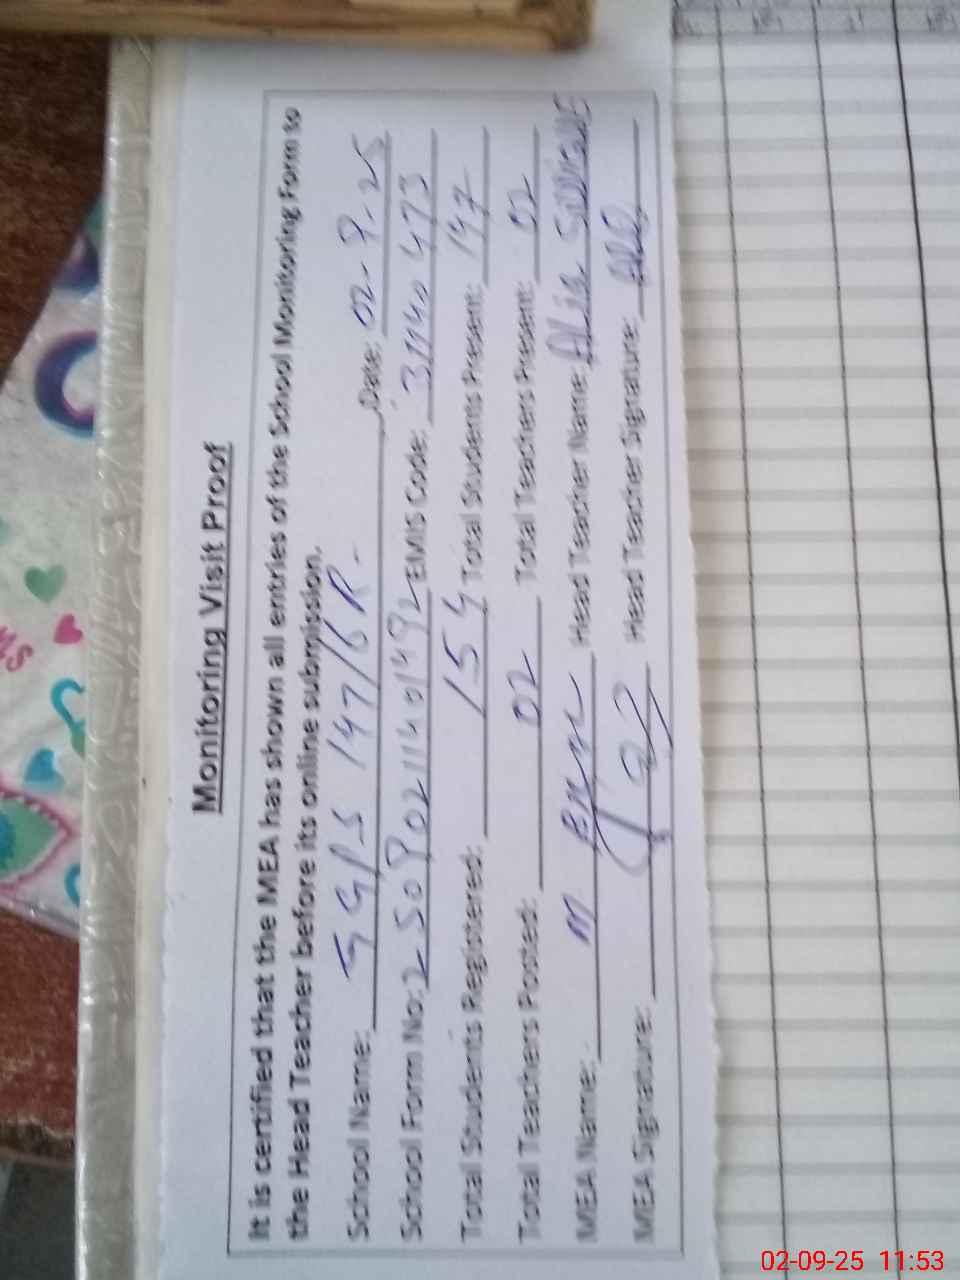 Monitoring Visit Proof
It is certified that the MEA has shown all entries of the School Monitoring Form to
the Head Teacher before its online submission.
School Name: GGPS 147/6R- Date: 02-9-25
School Form No: 25090211401492 EMIS Code: 31140473
Total Students Registered: 154 Total Students Present: 147
Total Teachers Posted: 02 Total Teachers Present: 02
MEA Name: M Head Teacher Name: Alia
MEA Signature: Head Teacher Signature:
02-09-25 11:53